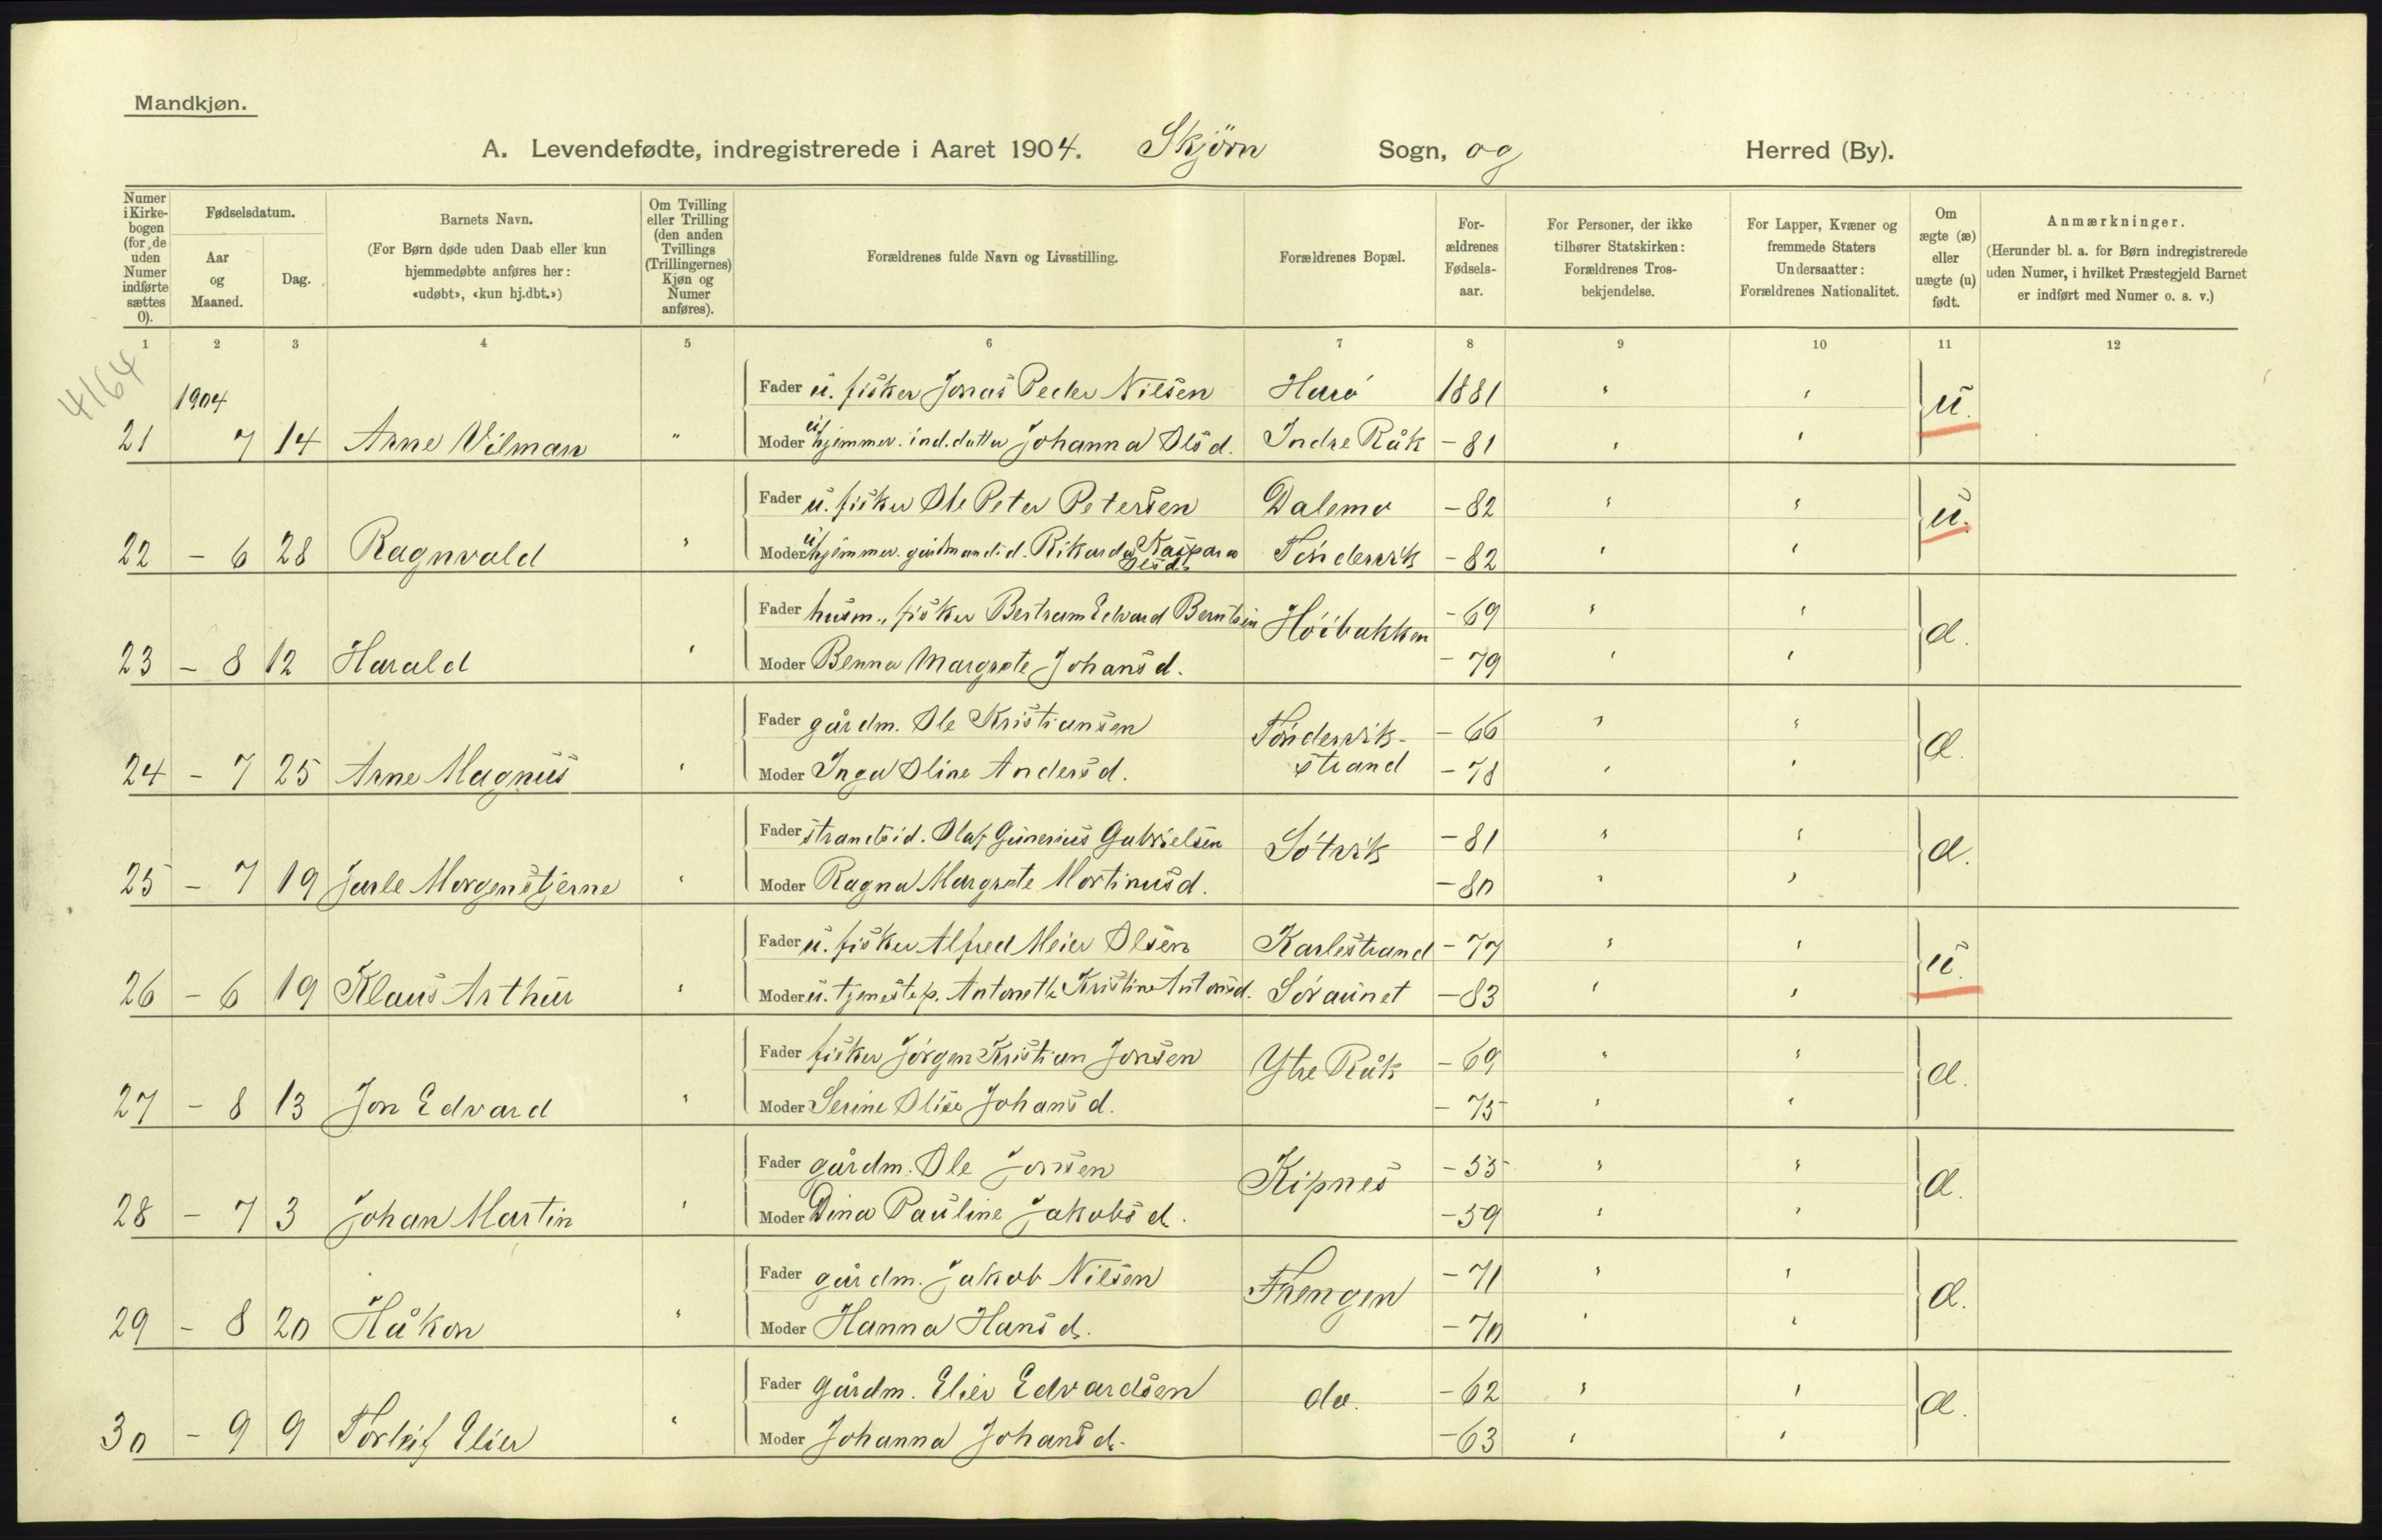 Mandkjøn.
A. Levendefødte, indregistrerede i Aaret 1904. Skjörn Sogn, og Herred (By).
Numer i Kirkebogen (for de uden Numer indførte sættes 0).
Fødselsdatum.
Aar og Maaned.
Dag.
Barnets Navn.
(For Børn døde uden Daab eller kun hjemmedøbte anføres her: «udøbt», «kun hj.dbt.»)
Om Tvilling eller Trilling (den anden Tvillings (Trillingernes) Kjøn og Numer anføres).
Forældrenes fulde Navn og Livsstilling.
Forældrenes Bopæl.
Forældrenes Fødselsaar.
For Personer, der ikke tilhører Statskirken: Forældrenes Trosbekjendelse.
For Lapper, Kvæner og fremmede Staters Undersaatter: Forældrenes Nationalitet.
Om ægte (æ) eller uægte (u) født.
Anmærkninger.
(Herunder bl. a. for Børn indregistrerede uden Numer, i hvilket Præstegjeld Barnet er indført med Numer o. s. v.)
1 2 3 4 5 6 7 8 9 10 11 12
4164
1904
Fader u. fisker Jonas Peder Nilsen Harö 1881 " " u.
21 7 14 Arne Vilman " Moder u. hjemmev. ind. datter Johanna Olsd. Indre Råk - 81 " "
Fader u. fisker Ole Peter Petersen Dalemo - 82 " " u.
22 - 6 28 Ragnvald " Moder u. hjemmev. gårdmandsd. Rikarda Kaspara Olsd. Töndervik - 82 " "
Fader husm., fisker Bertram Edvard Berntsen Höibakken - 69 " " æ.
23 - 8 12 Harald " Moder Benna Margrete Johansd. - 79 " "
Fader gårdm. Ole Kristiansen Töndervik- - 66 " " æ.
24 - 7 25 Arne Magnus " Moder Inga Oline Andersd. strand - 78 " "
Fader strandsid. Olaf Gunerius Gabrielsen Sötvik - 81 " " æ.
25 - 7 19 Jarle Morgenstjerne " Moder Ragna Margrete Mortinusd. - 80 " "
Fader u. fisker Alfred Meier Olsen Karlestrand - 77 " " u.
26 - 6 19 Klaus Arthur " Moder u. tjenestep. Antonette Kristine Antonsd. Söraunet - 83 " "
Fader fisker Jörgen Kristian Jonsen Ytre Råk - 69 " " æ.
27 - 8 13 Jon Edvard " Moder Serine Olise Johansd. - 75 " "
Fader gårdm. Ole Jonsen Kipnes - 55 " " æ.
28 - 7 3 Johan Martin " Moder Dina Pauline Jakobsd. - 59 " "
Fader gårdm. Jakob Nilsen Frengen - 71 " " æ.
29 - 8 20 Håkon " Moder Hanna Hansd. - 70 " "
Fader Gårdm. Elier Edvardsen do. - 62 " " æ.
30 - 9 9 Torleif Elier " Moder Johanna Johansd. - 63 " "